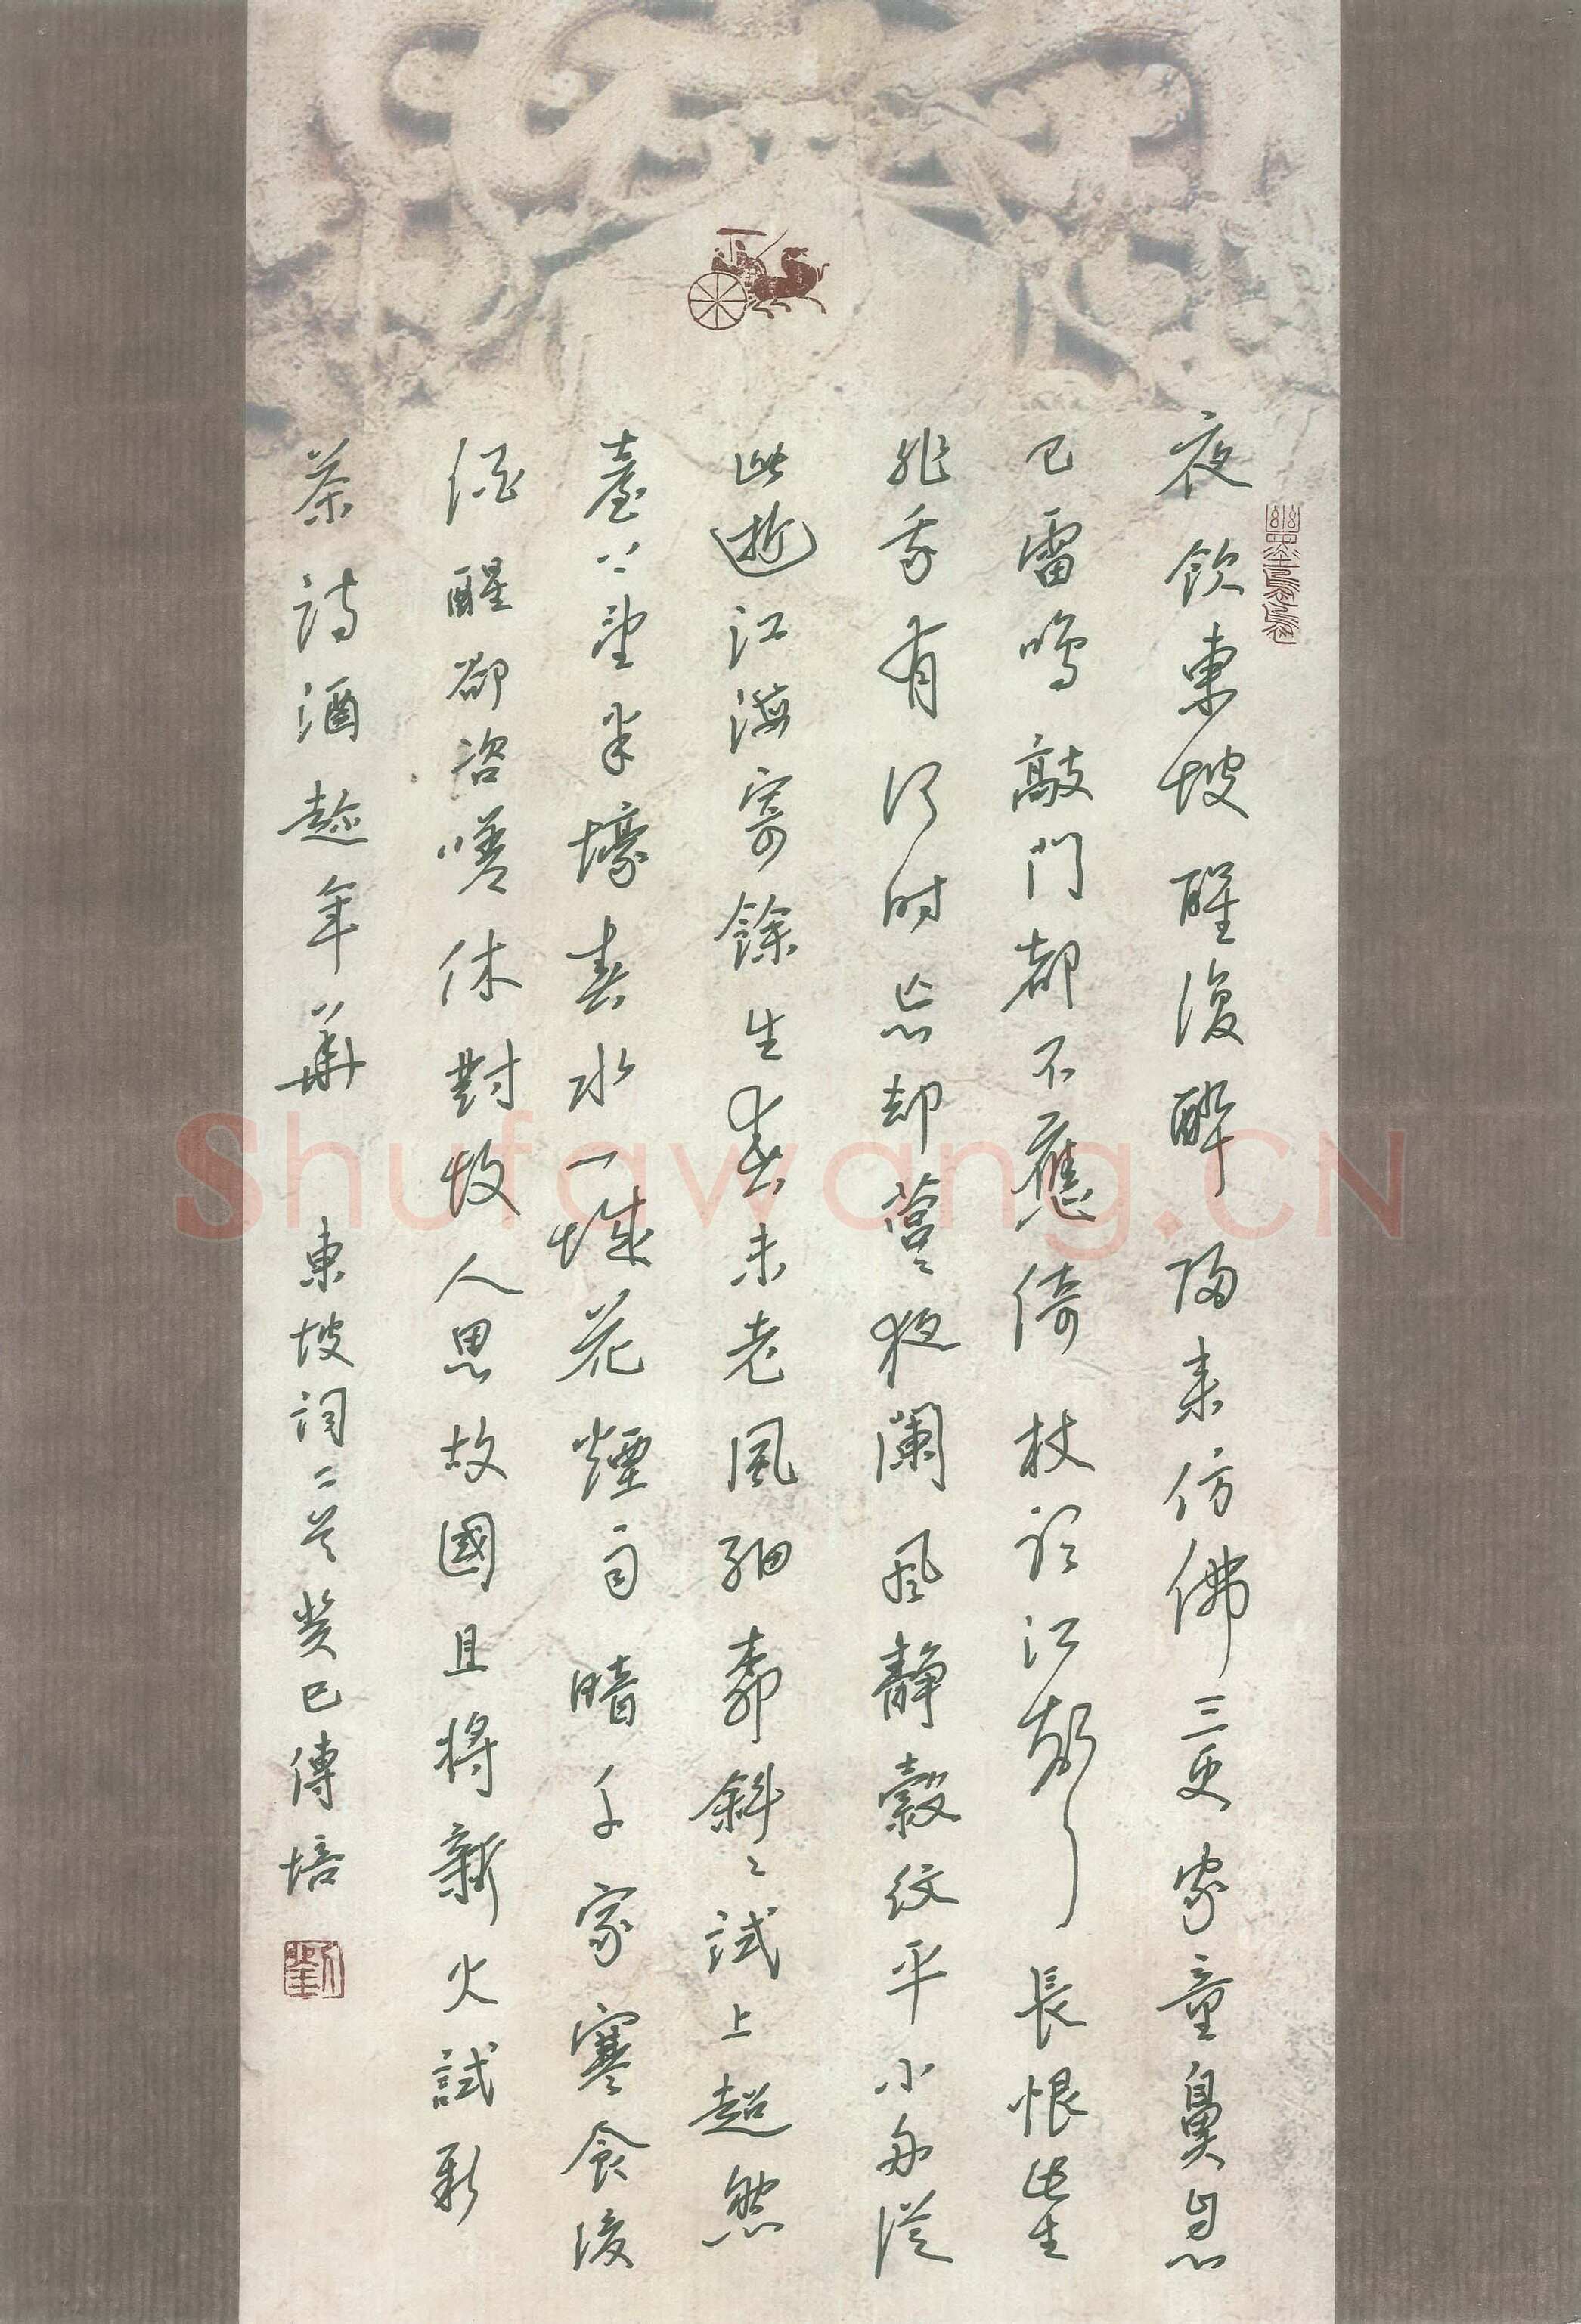 夜飲東坡醒復醉歸来仿佛三更家童鼻息
已雷鳴敲門都不應倚杖聽江聲長恨此生
非我有何时忘却營〻夜闌风静縠纹平小舟從
此逝江海寄餘生春未老風細柳斜〻試上超然
臺上望半壕春水一城花煙雨暗千家寒食後
酒醒卻咨嗟休對故人思故國且將新火試新
茶詩酒趁年華 東坡词二首癸巳傳培
劉
Shufawang.CN